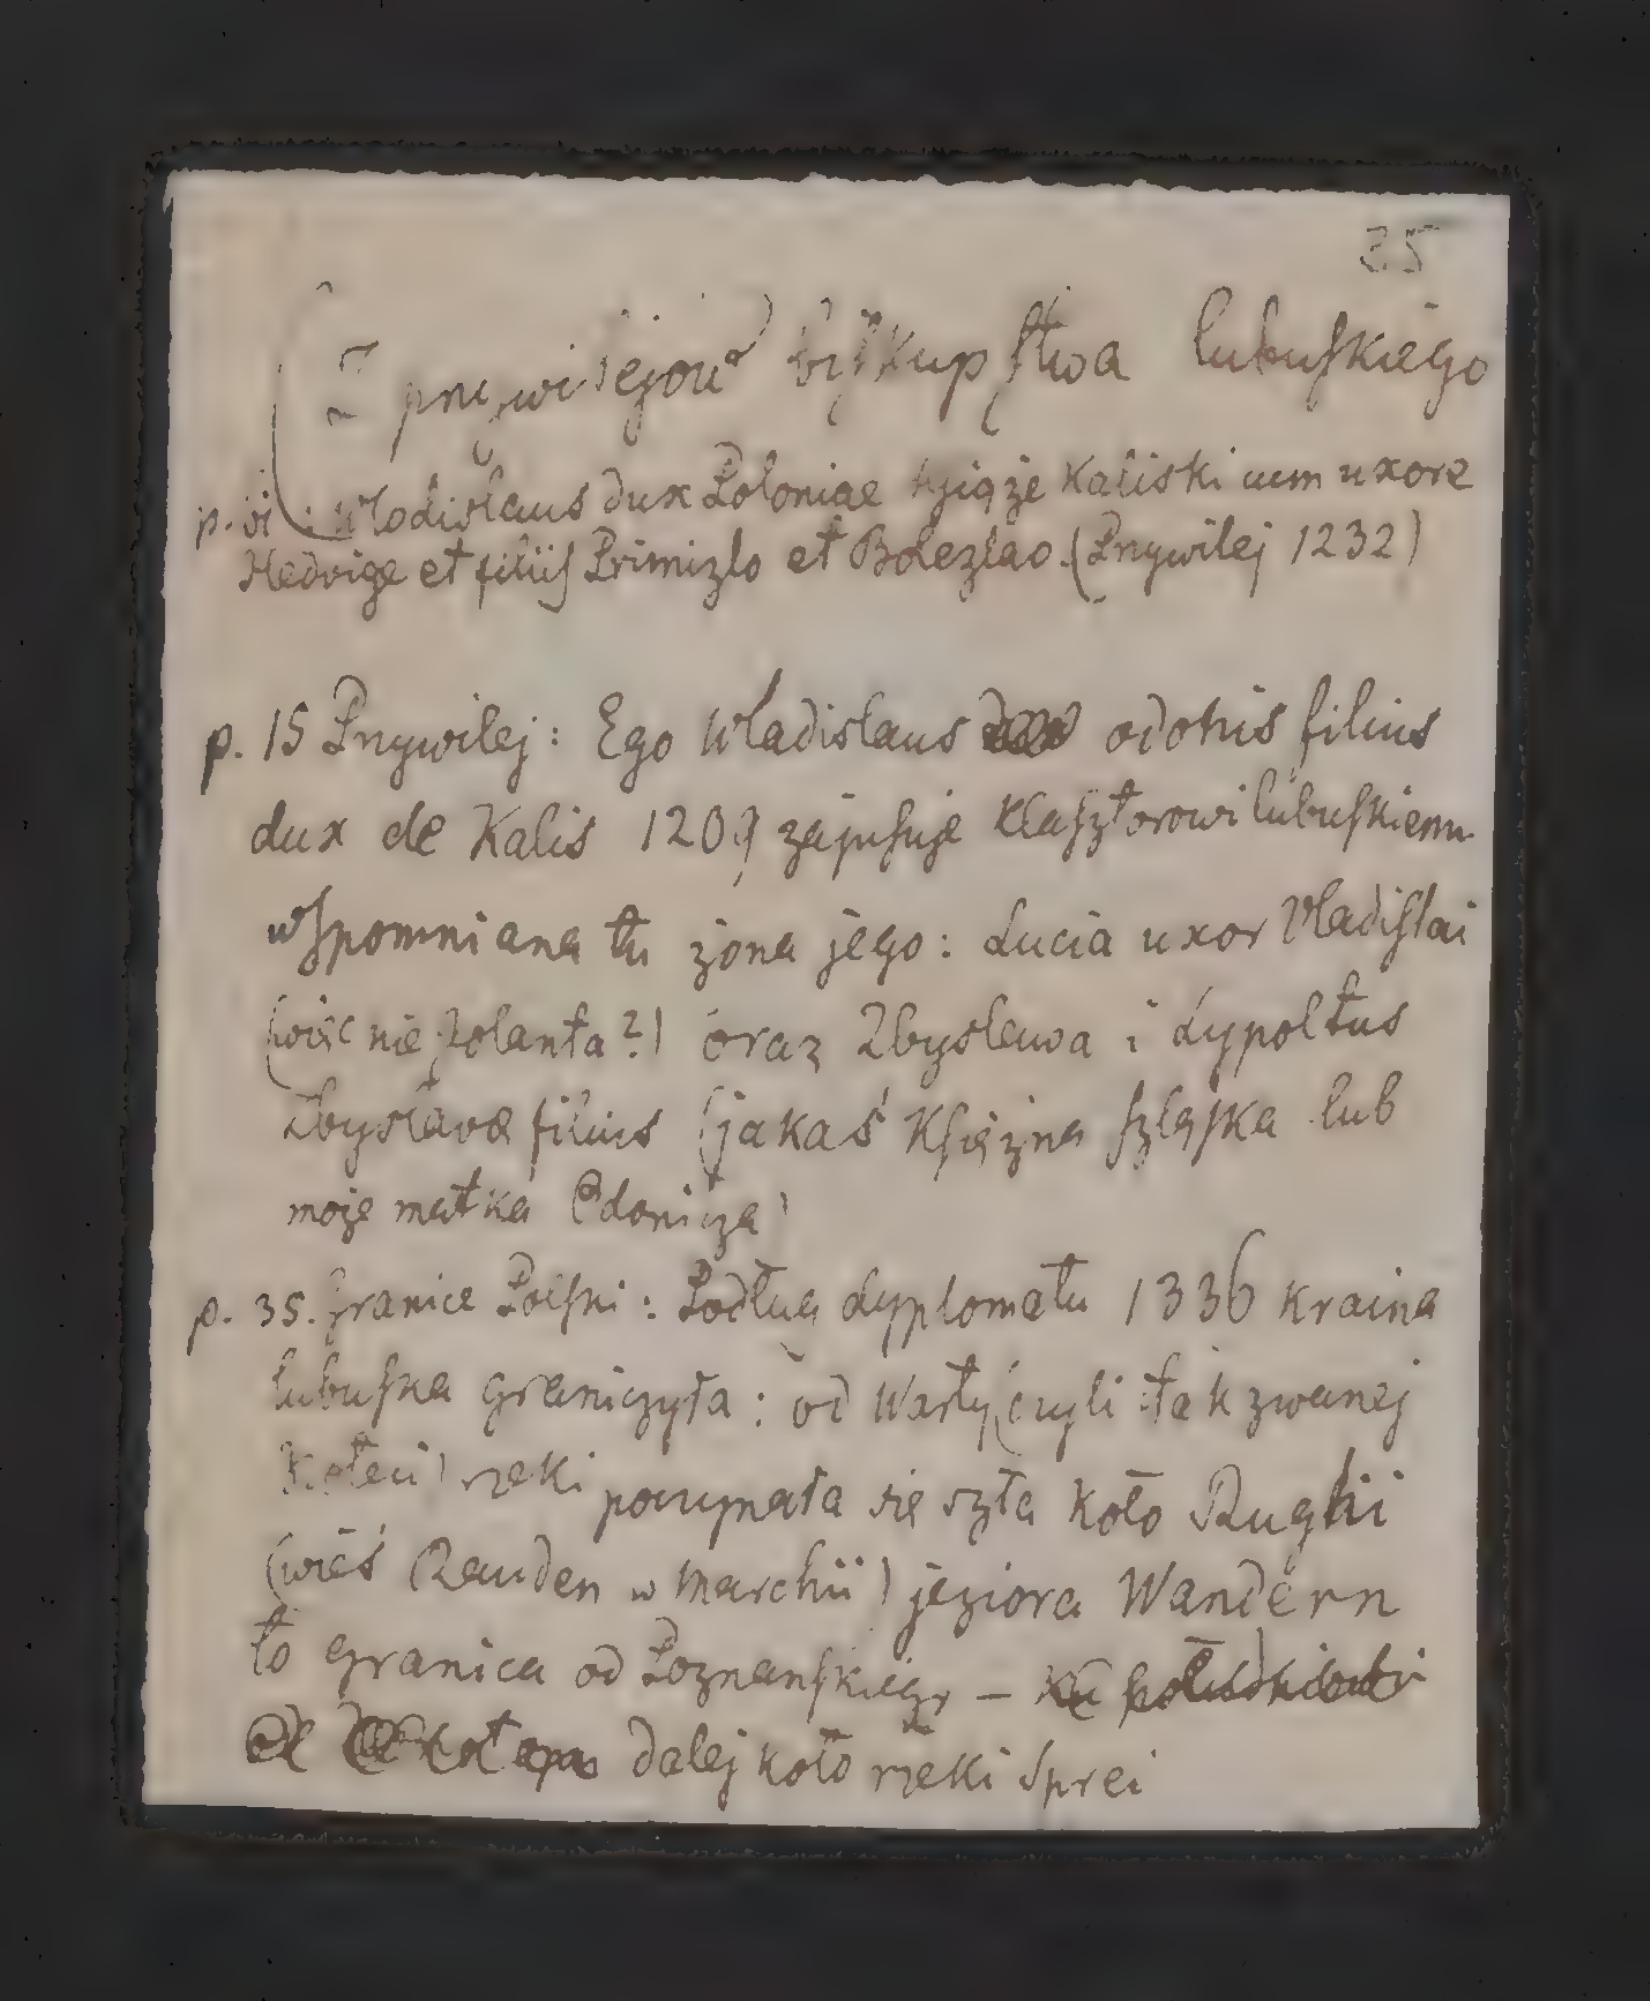 35
(Z przywilejow biskupstwa lubuskiego
p. 61 : Wlodislaus dux Poloniae książe Kaliski cum uxore
Hedvige et filiis Primizlo et Bolezlao. (Przywilej 1232)
p. 15 Przywilej : Ego Wladislaus odonis filius
dux de Kalis 1209 zapisuje klasztorowi lubuskiemu
wspomniana tu żona jego : Lucia uxor Vladislai
(więc nie Jolanta?) oraz Zbyslawa i Dypoltus
Zbyslavae filius (jakaś Księżna szląska lub
może matka Odonicza)
p. 35. Granice Polski : Podług dyplomatu 1336 kraina
lubuska graniczyła : od Warty (czyli tak zwanej
Noteci) rzeki poczynała się szła koło Rugki
(wieś Rauden w Marchii) jeziora Wandern
to granica od Poznanskiego – ku południowi
dalej koło rzeki Sprei